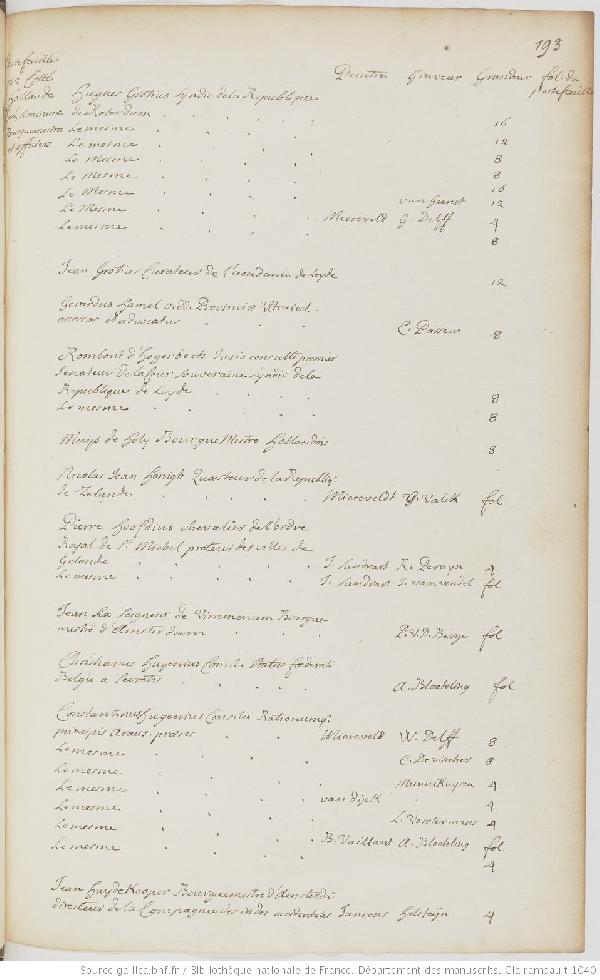 193
Peintre Graveur Grandeur fol. du
portefeuille
Hollande
Hugues Grotius syndic de la Republique
de Roterdam 16
Le mesme 12
Le mesme 8
Le mesme 8
Le mesme 16
Le Mesme van Gunst 12
Le Mesme Miereveld G. Delff 4
Le mesme 8
Jean Grotius Curateur de l'academie de Leyde 12
Gerardus Hamel ord. Provinciæ Ultraiect.
assessor et advocatus C. Passeus 8
Rombout d'Hogerbeets Jurisconsulte premier
senateur de la Cour souveraine syndic de la
Republique de Leyde 8
Le mesme 8
Muys de Holy Bourguemestre Hollandois 8
Nicolas Jean Honigh Quæsteur de la Republiq.
de Zelande Miereveldt G. Valck fol
Pierre Hoofdius chevalier de l'ordre
Royal de St. Michel preteur des villes de
Goilande J. Sandrart R. Persyn 4
Le mesme J. Sandrart J. van vondel fol
Jean seigneur de Timmenum Bourgue
mestre d'Amsterdam P. V. D. Berge fol
Christianus Hugenius Consil. Status fœderati
Belgii a secretis A. Bloeteling fol
Constantinus Hugenius Consilii Rationumq.
principis Araus. præses Miereveld W. Delff 8
Le mesme C. De visscher 8
Le mesme Munnikuysen 4
Le mesme van dijck 4
Le mesme L. Vorstermans 4
Le mesme B. Vaillant A. Bloeteling fol
Le mesme 4
Jean Huydekooper Bourguemestre d'Amsterda
directeur de la Compagnie des indes occidentales Jansens Holsteijn 4
Source gallica.bnf.fr / Bibliothèque nationale de France. Département des manuscrits. Clairambault 1040